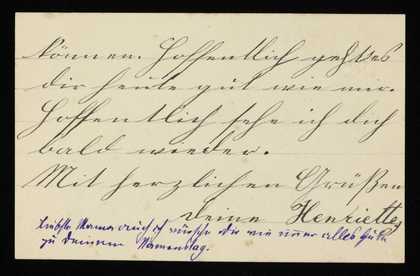 können. Hoffentlich geht es
dir heute gut wie mir.
Hoffentlich sehe ich dich
bald wieder.
Mit herzlichen Grüßen
Deine Henriette
Liebste Mama auch ich wünsche dir wie immer alles Gute
zu Deinem Namenstag.